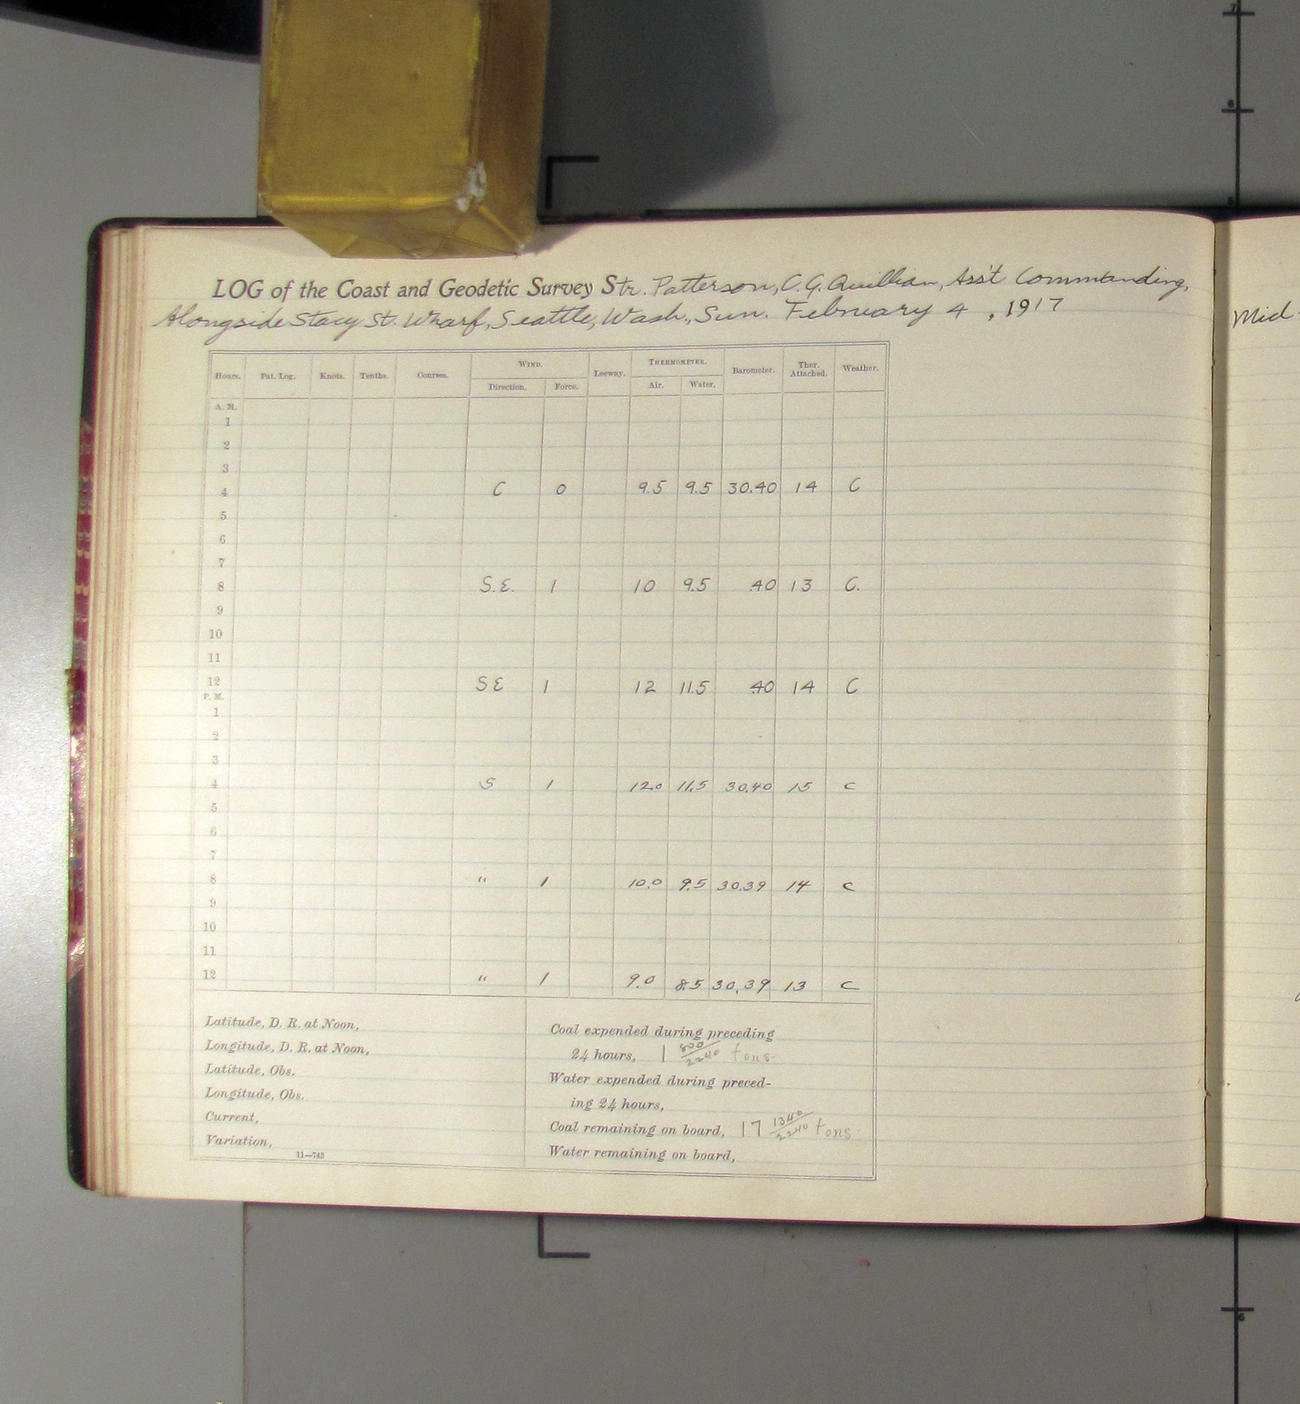 LOG of the Coast and Geodetic Survey Str. Patterson, C. G. Quillian, Ass't Commanding,
Alongside Stacy St. Wharf, Seattle, Wash., Sun. February 4, 1917
Hours. Pat. Log. Knots. Tenths. Courses. WIND. Leeway. THERMOMETER. Barometer. Ther. Attached. Weather.
Direction. Force. Air. Water.
A. M.
1
2
3
4 C 0 9.5 9.5 30.40 14 C
5
6
7
8 S.E. 1 10 9.5 .40 13 C.
9
10
11
12 SE 1 12 11.5 .40 14 C
P. M.
1
2
3
4 S 1 12.0 11.5 30.40 15 c
5
6
7
8 " 1 10.0 9.5 30.39 14 c
9
10
11
12 " 1 9.0 8.5 30.39 13 c
Latitude, D. R. at Noon,
Longitude, D. R. at Noon,
Latitude, Obs.
Longitude, Obs.
Current,
Variation,
11—743
Coal expended during preceding
24 hours, 1 800/2240 tons.
Water expended during preced-
ing 24 hours,
Coal remaining on board, 17 1340/2240 tons.
Water remaining on board,
Mid
7
6
5
6